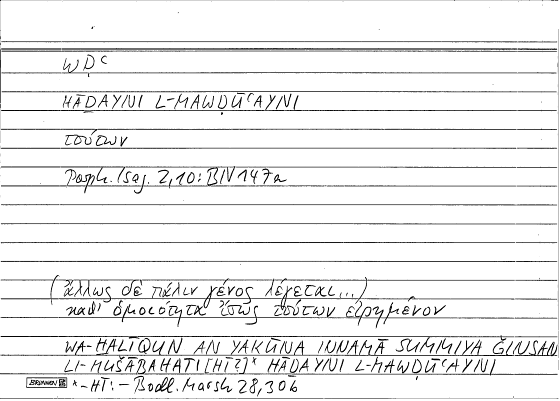 WḌʿ
HĀḎAYNI L-MAWḌŪʿAYNI
τούτων
Porph. Isag. 2,10: BIV 147a
(ἄλλως δὲ πάλιν γένος λέγεται...)
καθ' ὁμοιότητα ἴσως τούτων εἰρημένον
WA-ḪALĪQUN AN YAKŪNA INNAMĀ SUMMIYA ĞINSAN
LI-MUŠĀBAHATI [HĪ?]* HĀḎAYNI L-MAWḌŪʿAYNI
BRUNNEN *-HĪ: – Bodl. Marsh 28,30b